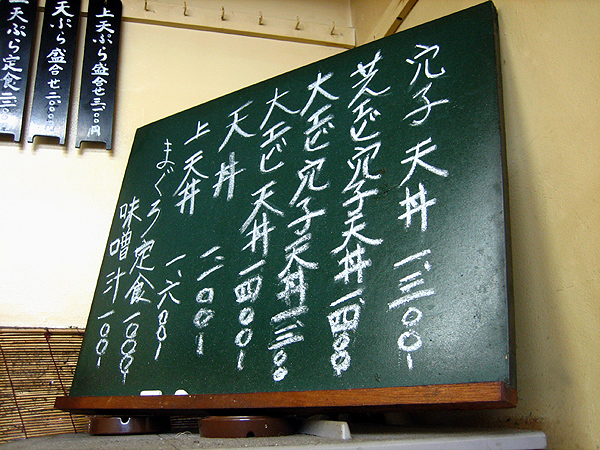 穴子天丼 一、三〇〇-
芝エビ穴子天丼 一、四〇〇
大エビ穴子天丼 一、三〇〇
大エビ天丼 一、四〇〇-
天丼 一、二〇〇-
上天丼 一、六〇〇-
まぐろ定食 一〇〇〇-
味噌汁 一〇〇-
上天ぷら盛合せ 三、一〇〇円
天ぷら盛合せ 二、一〇〇円
上天ぷら定食